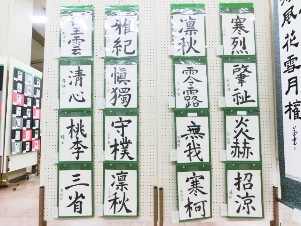 雅紀
清心
慎獨
桃李
守樸
三省
凛秋
凛秋
寒烈
零露
肇祉
無我
炎赫
寒柯
招涼
風花雪月